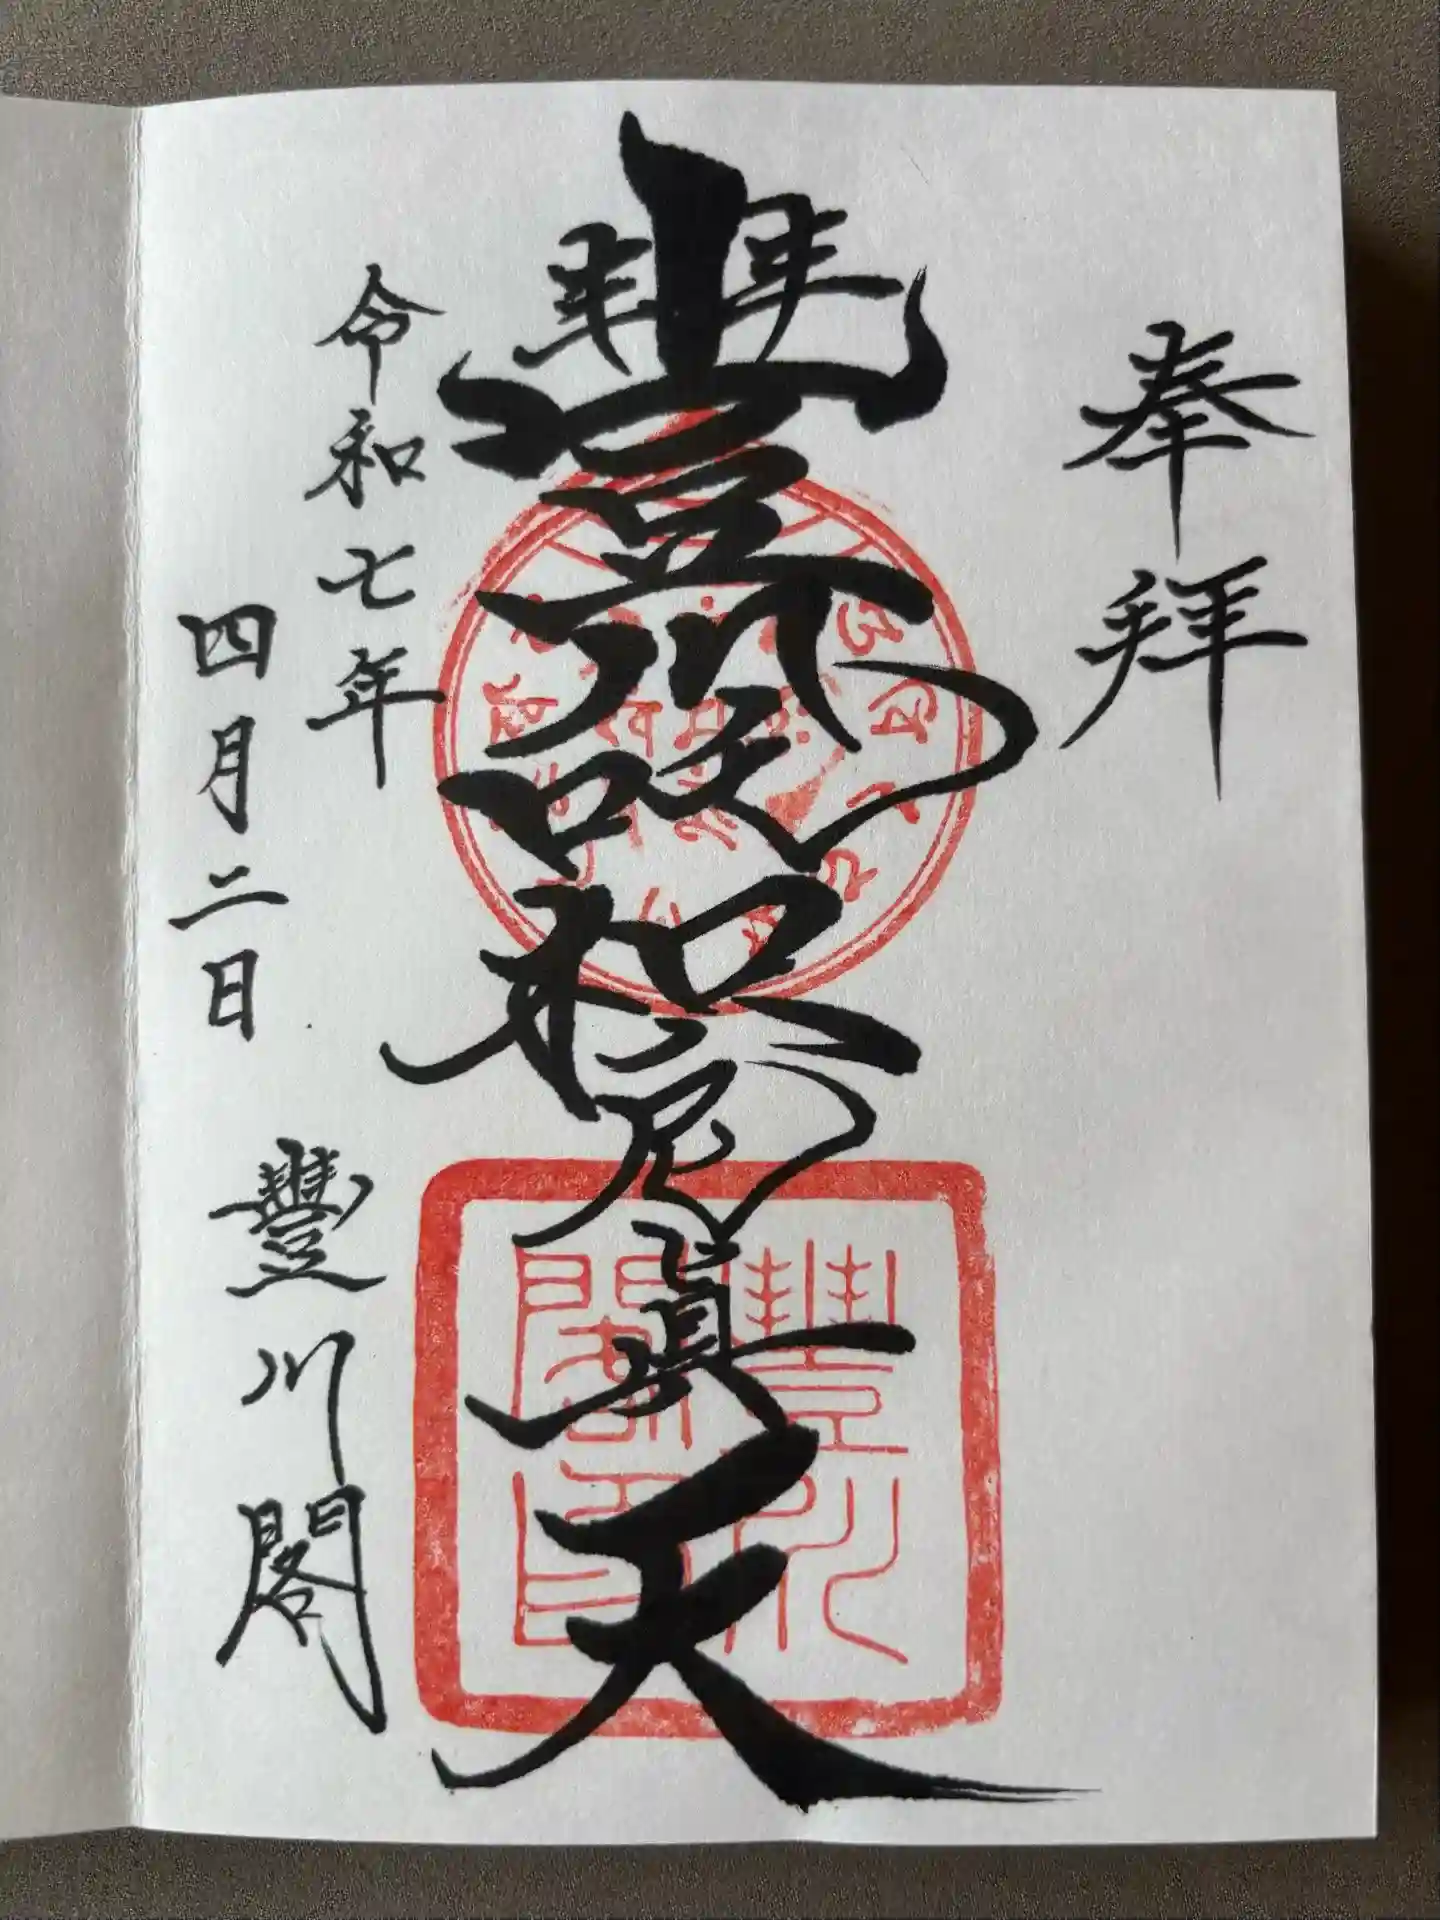 奉拝
豐川吒枳尼眞天
令和七年
四月二日
豐川閣
豐川
閣印